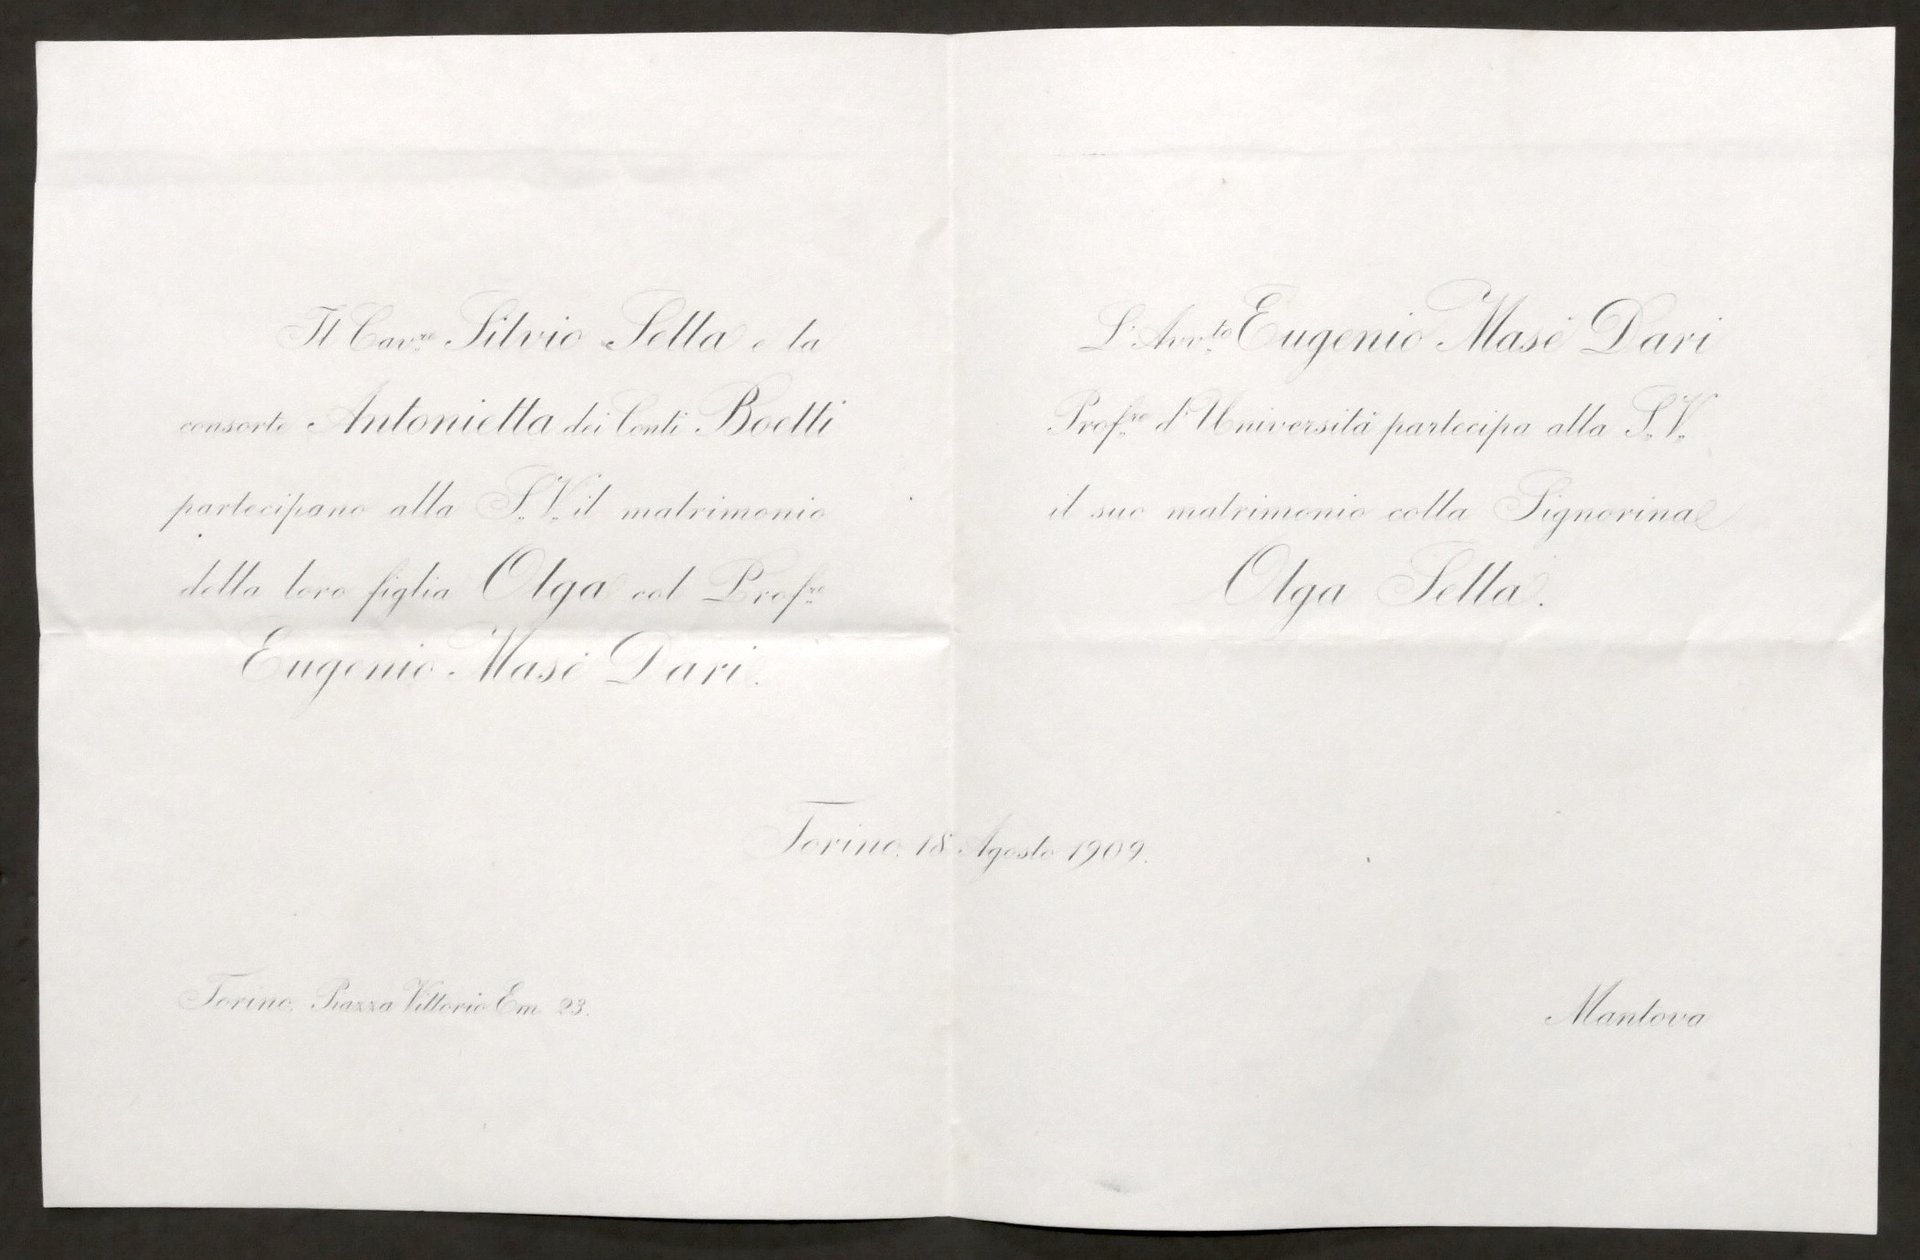 Il Cav.re Silvio Sella e la
consorte Antonietta dei Conti Boetti
partecipano alla S.V. il matrimonio
della loro figlia Olga col Prof.re
Eugenio Masè Dari.
L'Avv.to Eugenio Masè Dari
Prof.re d'Università partecipa alla S.V.
il suo matrimonio colla Signorina
Olga Sella.
Torino, 18 Agosto 1909.
Torino, Piazza Vittorio Em. 23.
Mantova